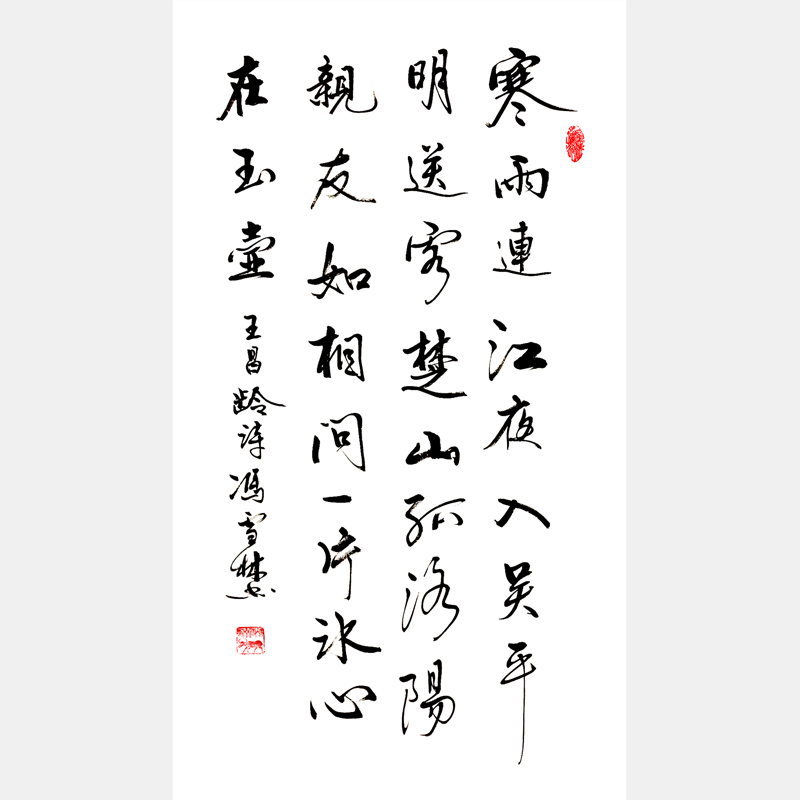 寒雨連江夜入吳平
明送客楚山孤洛陽
親友如相問一片冰心
在玉壺
王昌齡詩馮雪林書